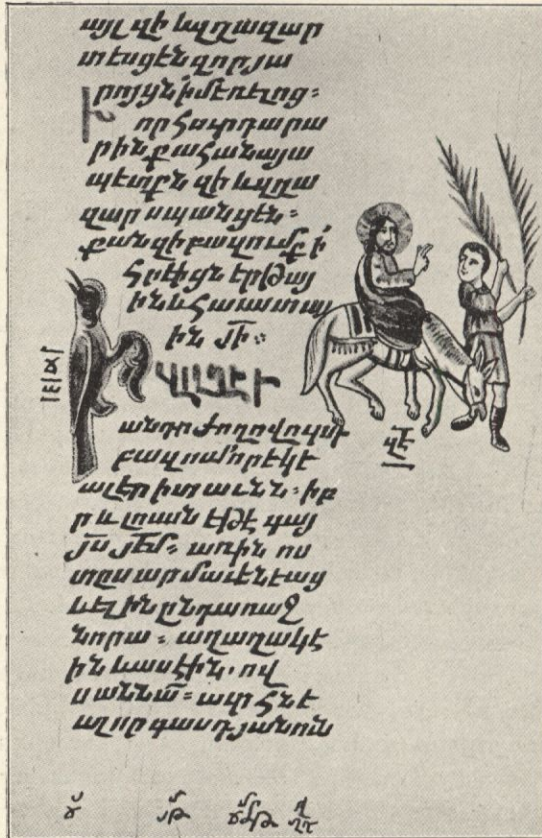 այլ զի եւզղազար
տեսցեն զորյա
րոյցն ի մեռելոց։
Խորհուրդ արա
րին քահանայա
պետքն զի եւզղա
զար սպանցեն։
քանզի բազումք ի
հրէիցն երթայ
ին և հաւատայ
ին յի։
ՎԱՂԷՒ
անդր ժողովուրդ
բազում որ եկե
ալ էր ի տաւնն։ իբ
ր և լուան եթէ գայ
յս յեմ։ առին ոս
տըս արմաւենեաց
և ելին ընդառաջ
նորա։ աղաղակէ
ին և ասէին. ով
սաննա։ աւրհնե
ալ որ գասդ յանուն